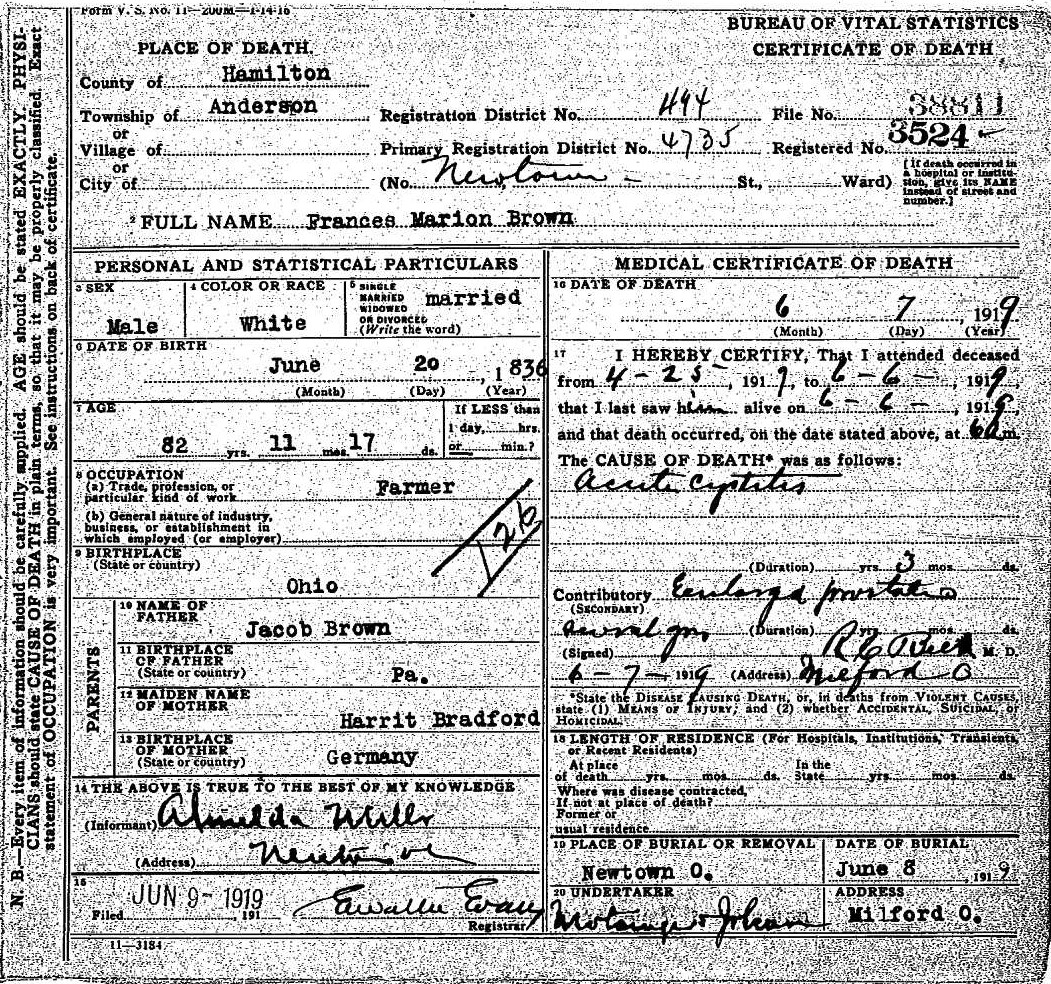 Form V. S. No. 11—200M—1-14-16
BUREAU OF VITAL STATISTICS
CERTIFICATE OF DEATH
PLACE OF DEATH.
County of Hamilton
Township of Anderson
or
Village of
or
City of
Registration District No. 494
File No. 38811
Primary Registration District No. 4735
Registered No. 3524
(No. Newtown St., Ward)
[If death occurred in
a hospital or institu-
tion, give its NAME
instead of street and
number.]
2 FULL NAME Frances Marion Brown
PERSONAL AND STATISTICAL PARTICULARS
3 SEX
Male
4 COLOR OR RACE
White
5 SINGLE
MARRIED
WIDOWED
OR DIVORCED
(Write the word)
married
6 DATE OF BIRTH
June 20, 1836
(Month) (Day) (Year)
7 AGE
82 yrs. 11 mos. 17 ds.
If LESS than
1 day, hrs.
or min.?
8 OCCUPATION
(a) Trade, profession, or
particular kind of work Farmer
(b) General nature of industry,
business, or establishment in
which employed (or employer)
126
9 BIRTHPLACE
(State or country)
Ohio
PARENTS
10 NAME OF
FATHER
Jacob Brown
11 BIRTHPLACE
OF FATHER
(State or country)
Pa.
12 MAIDEN NAME
OF MOTHER
Harrit Bradford
13 BIRTHPLACE
OF MOTHER
(State or country)
Germany
14 THE ABOVE IS TRUE TO THE BEST OF MY KNOWLEDGE
(Informant) Almelda Mills
(Address)
15
Filed JUN 9-1919, 191
Evans
Registrar
11—3184
MEDICAL CERTIFICATE OF DEATH
16 DATE OF DEATH
6 7, 1919
(Month) (Day) (Year)
17 I HEREBY CERTIFY, That I attended deceased
from 4-25-, 1919, to 6-6-, 1919,
that I last saw him alive on 6-6-, 1919,
and that death occurred, on the date stated above, at 6a m.
The CAUSE OF DEATH* was as follows:
Acute cystitis
(Duration) yrs. 3 mos. ds.
Contributory Enlarged prostate
(SECONDARY)
several yrs (Duration) yrs. mos. ds.
(Signed) M. D.
6-7-1919 (Address) Milford O
*State the DISEASE CAUSING DEATH, or, in deaths from VIOLENT CAUSES,
state (1) MEANS OF INJURY; and (2) whether ACCIDENTAL, SUICIDAL, or
HOMICIDAL.
18 LENGTH OF RESIDENCE (For Hospitals, Institutions, Transients,
or Recent Residents)
At place
of death yrs. mos. ds.
In the
State yrs. mos. ds.
Where was disease contracted,
If not at place of death?
Former or
usual residence
19 PLACE OF BURIAL OR REMOVAL
Newtown O.
DATE OF BURIAL
June 8 1919
20 UNDERTAKER
ADDRESS
Milford O.
N. B.—Every item of information should be carefully supplied. AGE should be stated EXACTLY. PHYSI-
CIANS should state CAUSE OF DEATH in plain terms, so that it may be properly classified. Exact
statement of OCCUPATION is very important. See instructions on back of certificate.